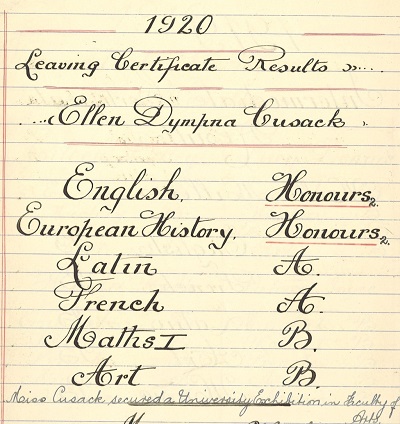 1920
Leaving Certificate Results
Ellen Dympna Cusack
English, Honours 2.
European History, Honours 2.
Latin A.
French A.
Maths I B.
Art B.
Miss Cusack secured a University Exhibition in Faculty of
Arts.